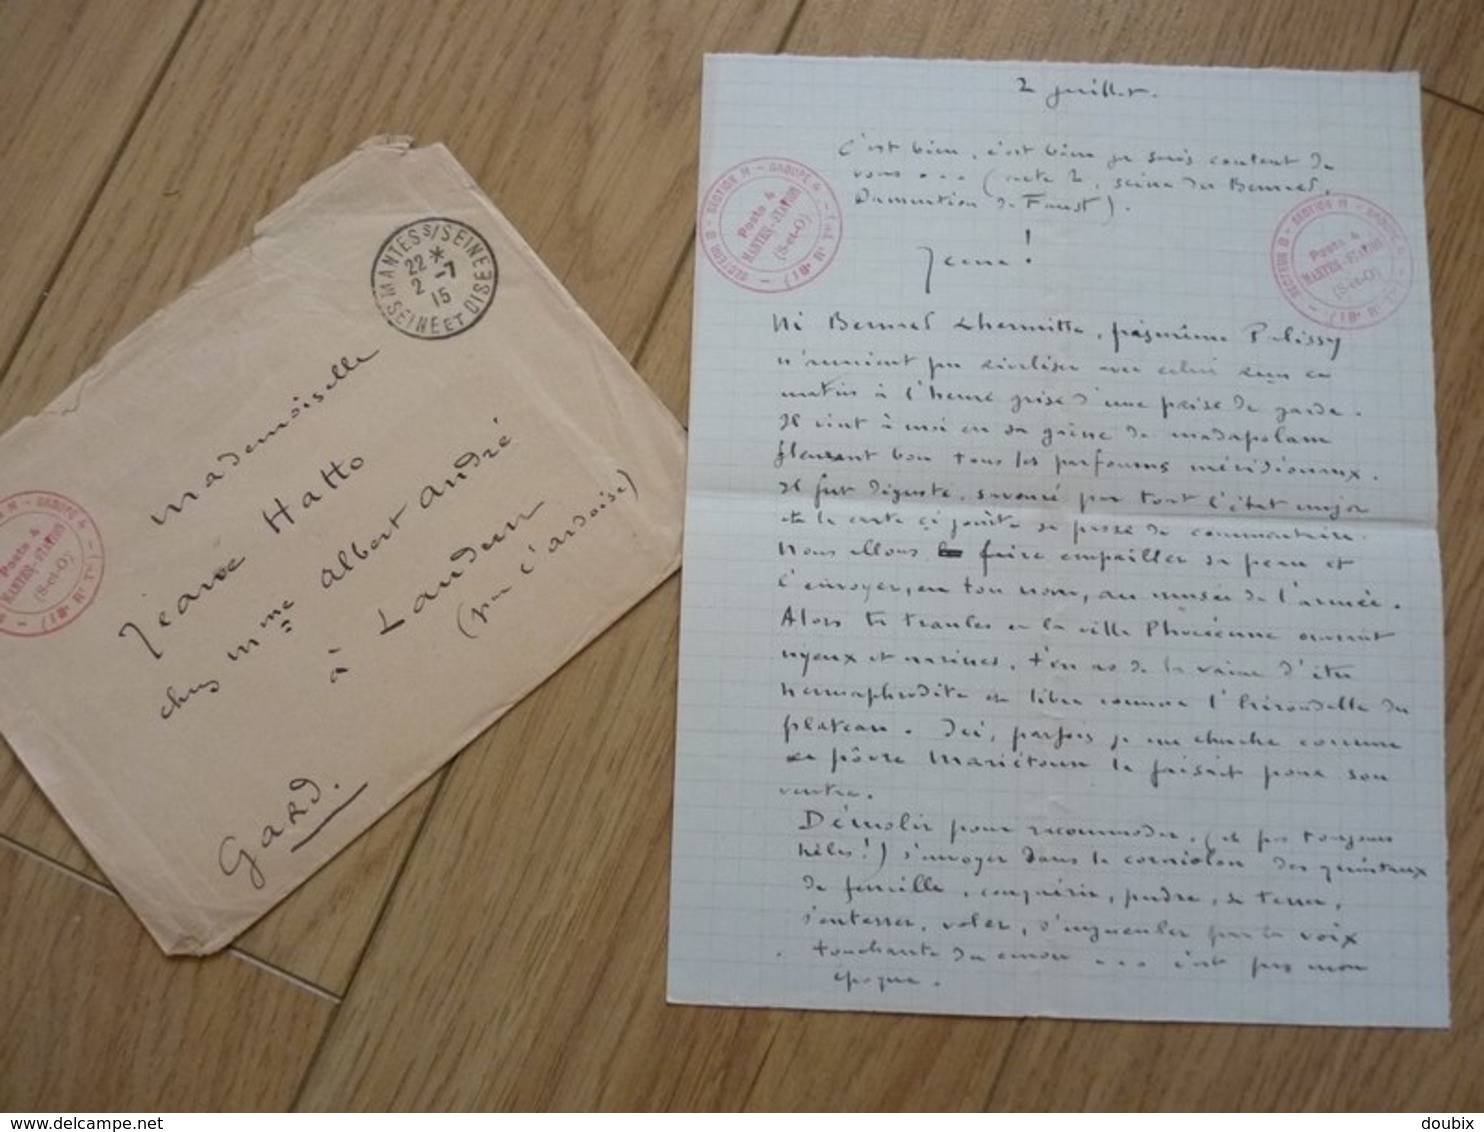 MANTES S/SEINE
22 *
2 - 7
15
SEINE ET OISE
Mademoiselle
Jeanne Hatto
chez Mme Albert André
à Laudun
(par l'ardoise)
Gard.
SECTEUR B - SECTION H - GROUPE 4
Poste 4
MANTES-STATION
(S-et-O)
2 juillet.
C'est bien, c'est bien je suis content de
vous . . . (acte 2,
Damnation de Faust).
SECTEUR B - SECTION H - GROUPE 4
Poste 4
MANTES-STATION
(S-et-O)
SECTEUR B - SECTION H - GROUPE 4
Poste 4
MANTES-STATION
(S-et-O)
Jeanne!
Ni Bernard Lhermitte, pas même Palissy
rivaliser avec celui reçu ce
matin à l'heure grise d'une prise de garde.
Il vint à moi en sa gaine de madapolam
fleurant bon tous les parfums méridionaux.
Il fut dégusté, savouré par tout l'état major
et la carte ci jointe se passe de commentaire.
Nous allons faire empailler sa peau et
l'envoyer, en ton nom, au musée de l'armée.
Alors tu traules en la ville Phocéenne ouvrant
n'yeux et narines, t'en as de la veine d'être
hermaphrodite et libre comme l'hirondelle du
plateau. Ici, parfois je me cherche comme
ce pôvre Mariétoun le faisait pour son
ventre.
Démolir pour raccommoder, (et pas toujours
hélas!) s'envoyer dans le corniolon des quintaux
de femelle, conquérir, perdre, se terrer,
s'enterrer, voler, s'engueuler par la voix
touchante du canon . . . c'est pas mon
époque.
delcampe.net
doubix